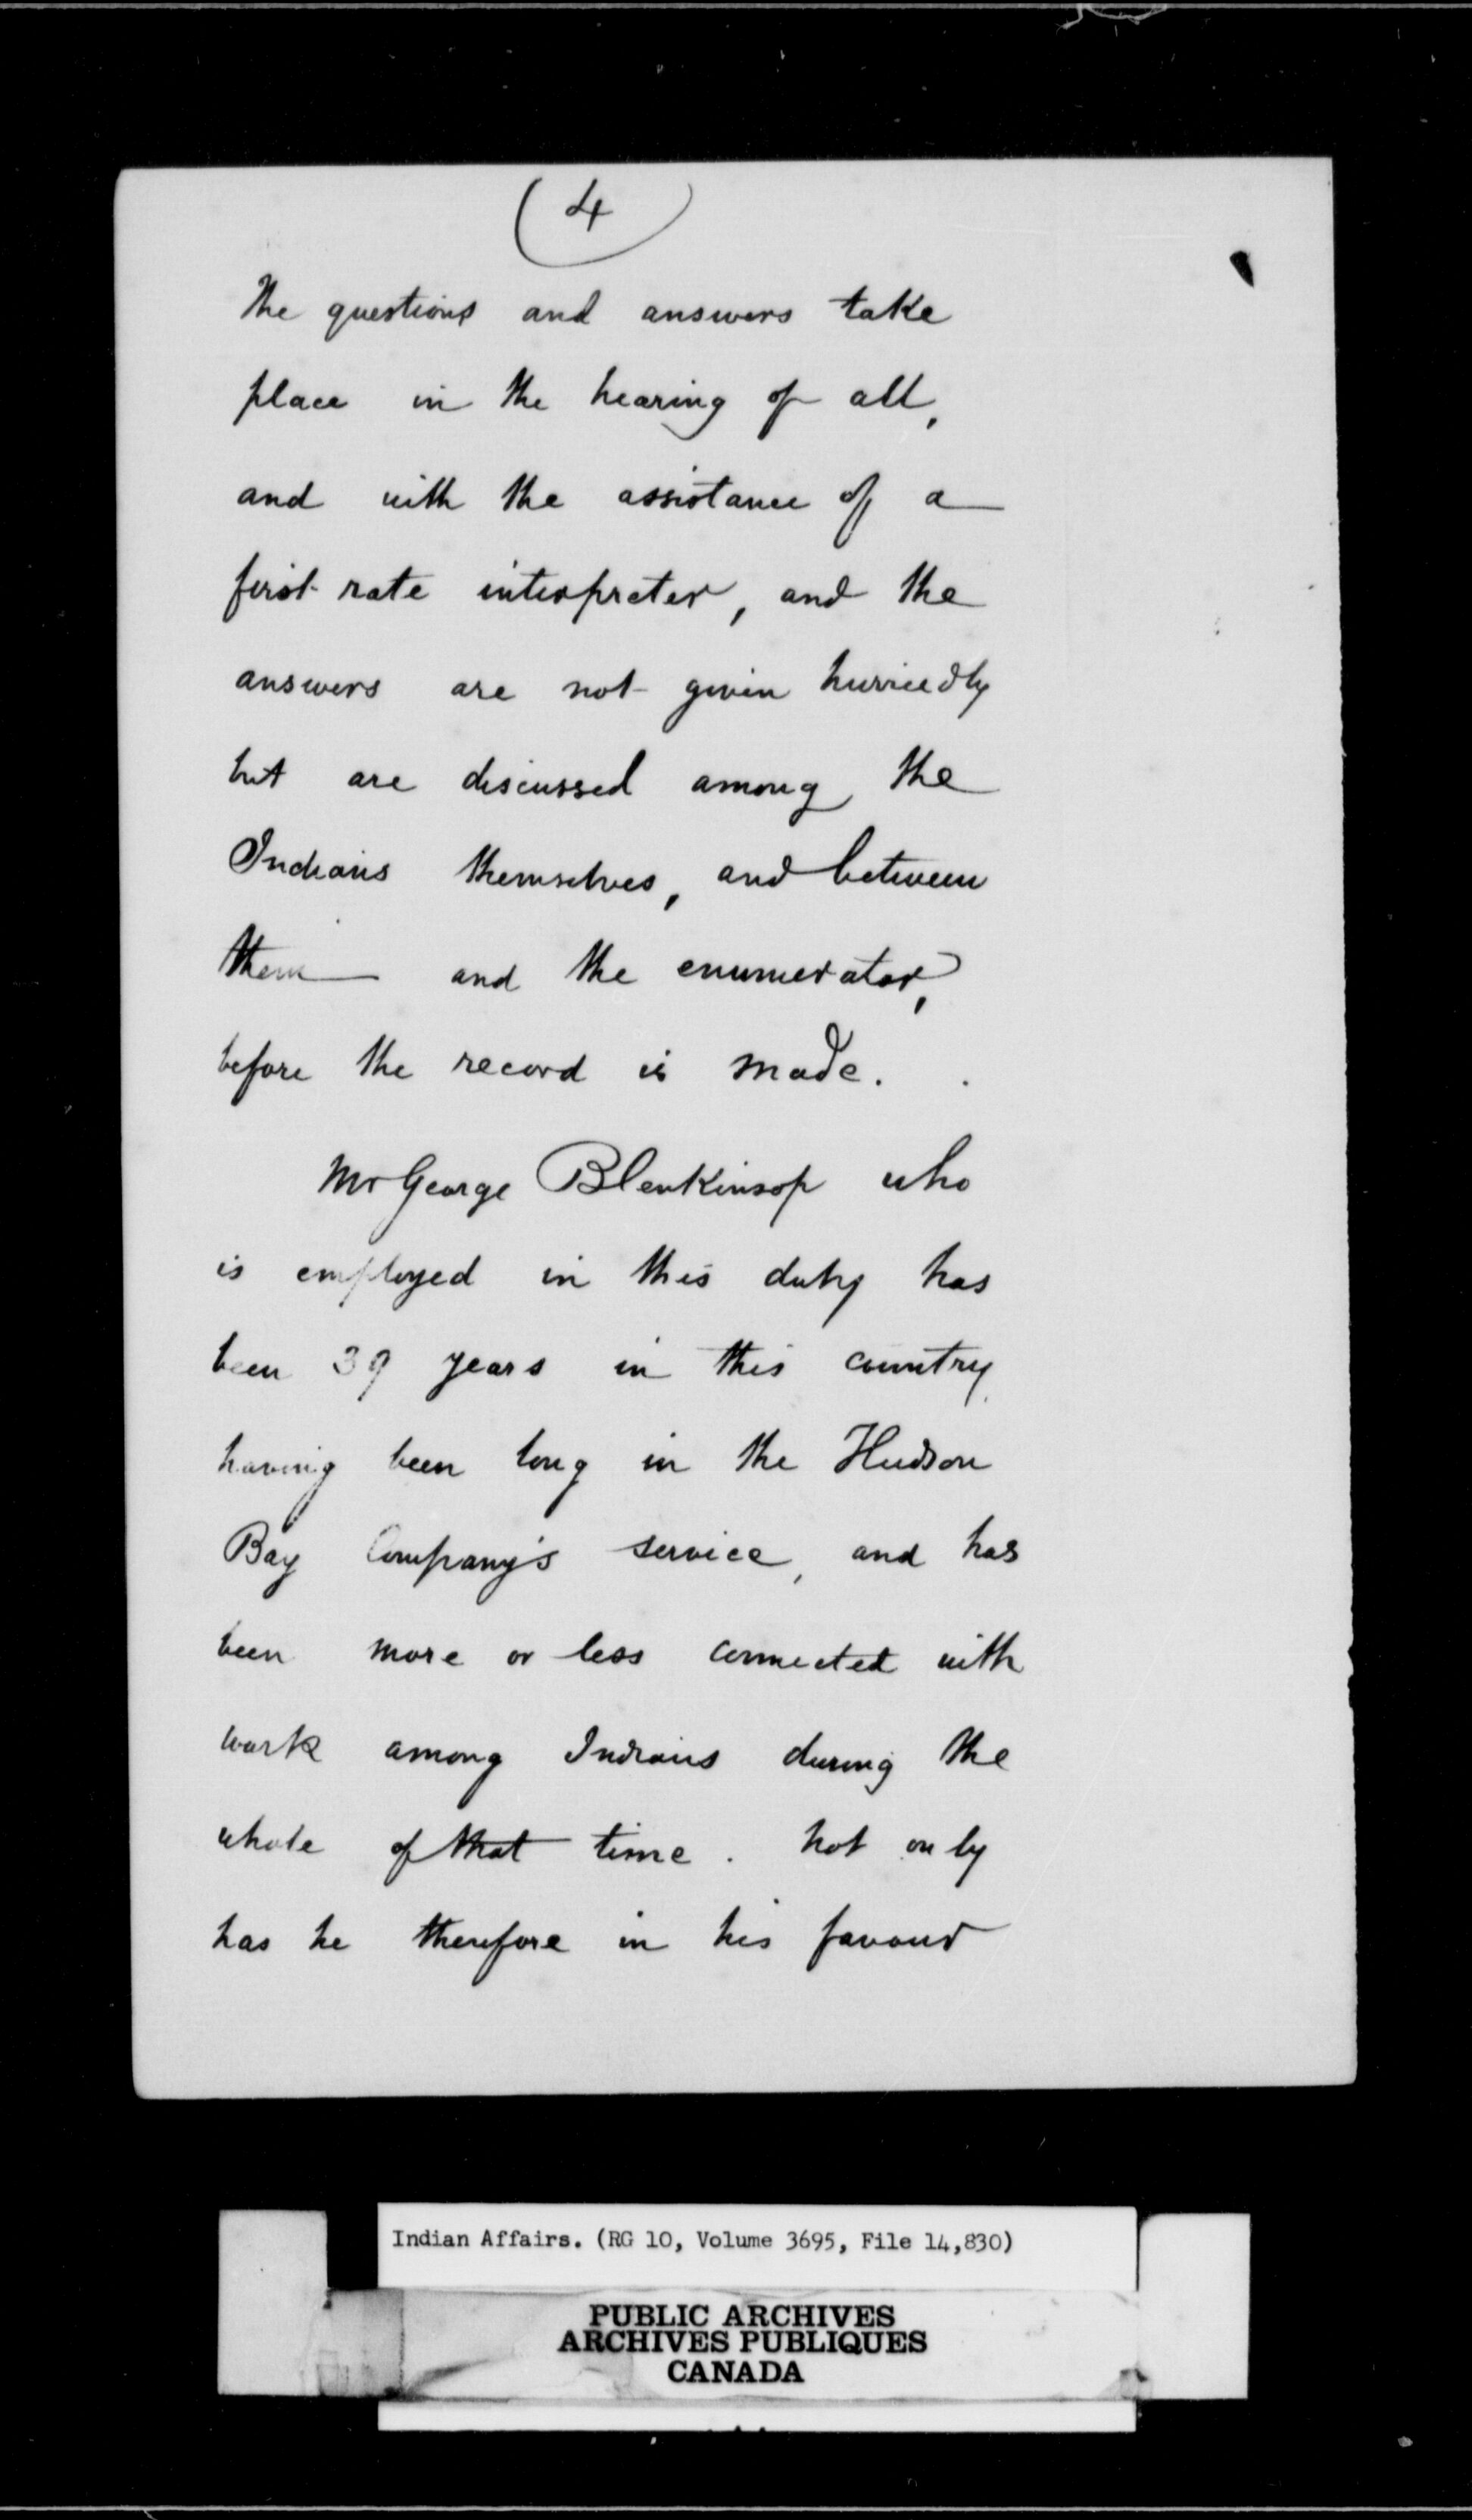 4
The questions and answers take
place in the hearing of all,
and with the assistance of a
first rate interpreter, and the
answers are not given hurriedly
but are discussed among the
Indians themselves, and between
them and the enumerator,
before the record is made.
Mr George Blenkinsop who
is employed in this duty has
been 39 years in this country
having been long in the Hudson
Bay Company's service, and has
been more or less connected with
work among Indians during the
whole of that time. Not only
has he therefore in his favour
Indian Affairs. (RG 10, Volume 3695, File 14,830)
PUBLIC ARCHIVES
ARCHIVES PUBLIQUES
CANADA